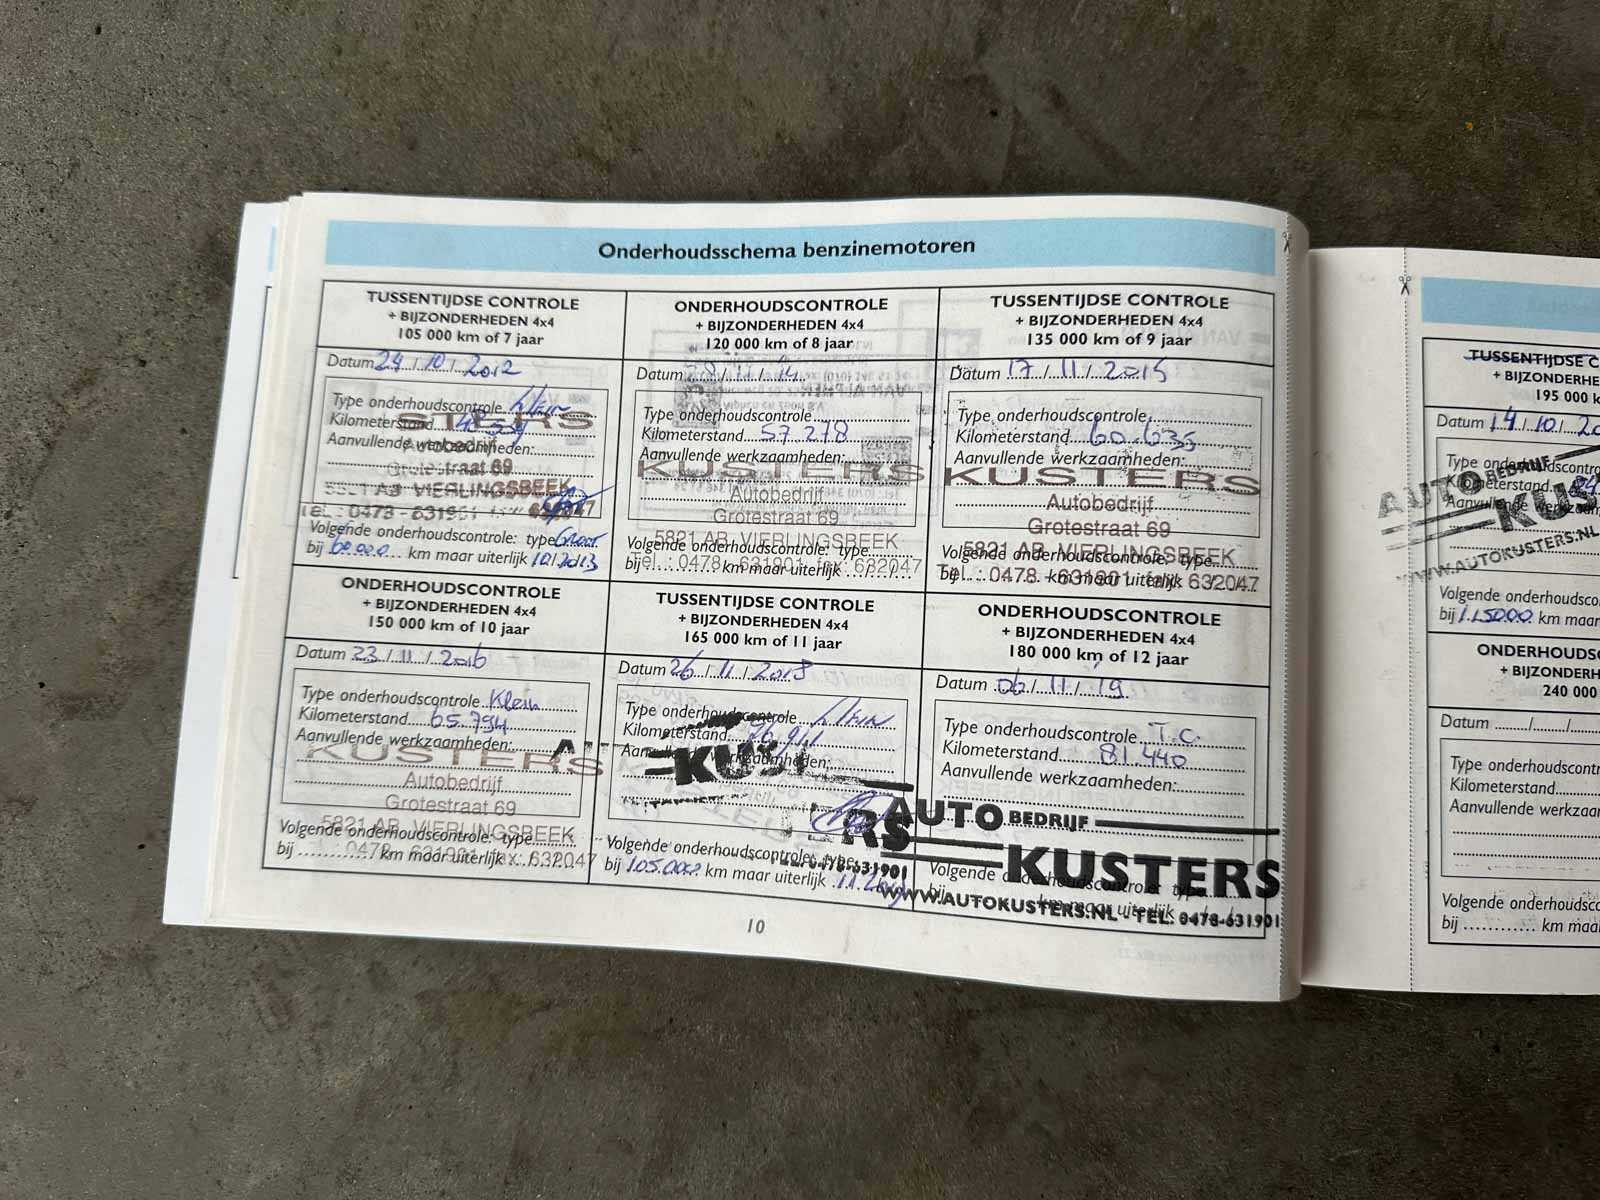 Onderhoudsschema benzinemotoren
TUSSENTIJDSE CONTROLE
+ BIJZONDERHEDEN 4x4
105 000 km of 7 jaar
Datum 24/10/2012
Type onderhoudscontrole klein
Kilometerstand
Aanvullende werkzaamheden:
STERS
Autobedrijf
Grotestraat 69
5821 AB VIERLINGSBEEK
Tel.: 0478 - 631901 fax 632047
Volgende onderhoudscontrole: type Groot
bij 60.000 km maar uiterlijk 10/2013
ONDERHOUDSCONTROLE
+ BIJZONDERHEDEN 4x4
120 000 km of 8 jaar
Datum 28/11/14
Type onderhoudscontrole
Kilometerstand 57.278
Aanvullende werkzaamheden:
KUSTERS
Autobedrijf
Grotestraat 69
5821 AB VIERLINGSBEEK
Tel.: 0478 - 631901 fax: 632047
Volgende onderhoudscontrole: type
bij km maar uiterlijk
TUSSENTIJDSE CONTROLE
+ BIJZONDERHEDEN 4x4
135 000 km of 9 jaar
Datum 17/11/2015
Type onderhoudscontrole
Kilometerstand 60.635
Aanvullende werkzaamheden:
KUSTERS
Autobedrijf
Grotestraat 69
5821 AB VIERLINGSBEEK
Tel.: 0478 - 631901 fax 632047
Volgende onderhoudscontrole: type
bij km maar uiterlijk
ONDERHOUDSCONTROLE
+ BIJZONDERHEDEN 4x4
150 000 km of 10 jaar
Datum 23/11/2016
Type onderhoudscontrole Klein
Kilometerstand 65.794
Aanvullende werkzaamheden:
KUSTERS
Autobedrijf
Grotestraat 69
5821 AB VIERLINGSBEEK
: 0478 - 631901 fax: 632047
Volgende onderhoudscontrole: type
bij km maar uiterlijk
TUSSENTIJDSE CONTROLE
+ BIJZONDERHEDEN 4x4
165 000 km of 11 jaar
Datum 26/11/2018
Type onderhoudscontrole klein
Kilometerstand 76.911
Aanvullende werkzaamheden:
KUS
RS
0478-631901
Volgende onderhoudscontrole: type
bij 105.000 km maar uiterlijk 11.2019
ONDERHOUDSCONTROLE
+ BIJZONDERHEDEN 4x4
180 000 km of 12 jaar
Datum 06/11/19
Type onderhoudscontrole T.C.
Kilometerstand 81.440
Aanvullende werkzaamheden:
AUTO BEDRIJF
KUSTERS
WWW.AUTOKUSTERS.NL - TEL: 0478-631901
Volgende onderhoudscontrole: type
bij km maar uiterlijk
10
TUSSENTIJDSE C
+ BIJZONDERHE
195 000 k
Datum 14/10/20
Type onderhoudscontrol
Kilometerstand
Aanvullende werkzaam
AUTO BEDRIJF
KUS
WWW.AUTOKUSTERS.NL
Volgende onderhoudsco
bij 115000 km maar
ONDERHOUDSC
+ BIJZONDERHE
240 000
Datum
Type onderhoudscontr
Kilometerstand
Aanvullende werkzaam
Volgende onderhoudsc
bij km maa